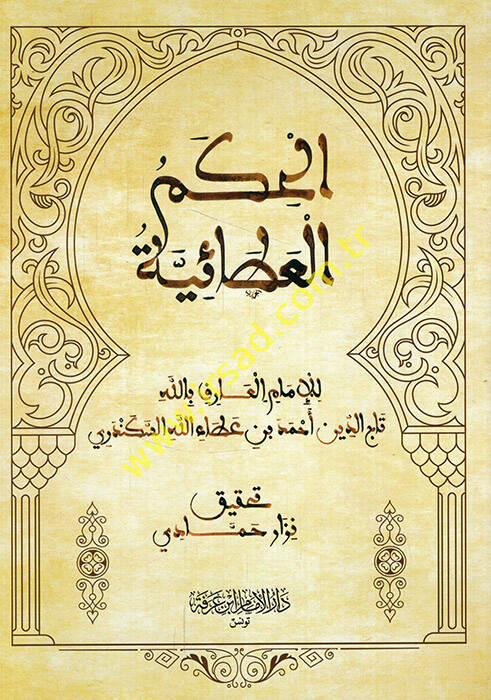 الحِكَمُ
العَطَائِيَّةُ
لِلإِمَامِ العَارِفِ بِاللَّهِ
تَاجِ الدِّينِ أَحْمَدَ بْنِ عَطَاءِ اللَّهِ السَّكَنْدَرِي
تحقيق
نِزَار حَمَّادِي
دار الإمام ابن عرفة
تونس
www.rsad.com.tr